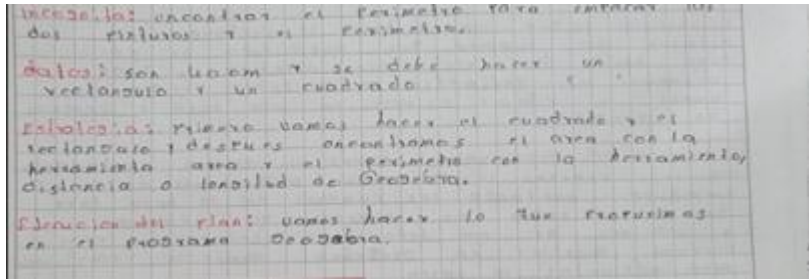 Incognita: encontrar el perimetro para enmarcar los
dos pinturas y el perimetro.
datos: son 400cm y se debe hacer un
rectangulo y un cuadrado
Estrategia: primero vamos hacer el cuadrado y el
rectangulo y despues encontramos el area con la
herramienta area y el perimetro con la herramienta,
distancia o longitud de Geogebra.
Ejecucion del plan: vamos hacer lo que propusimos
en el programa Geogebra.